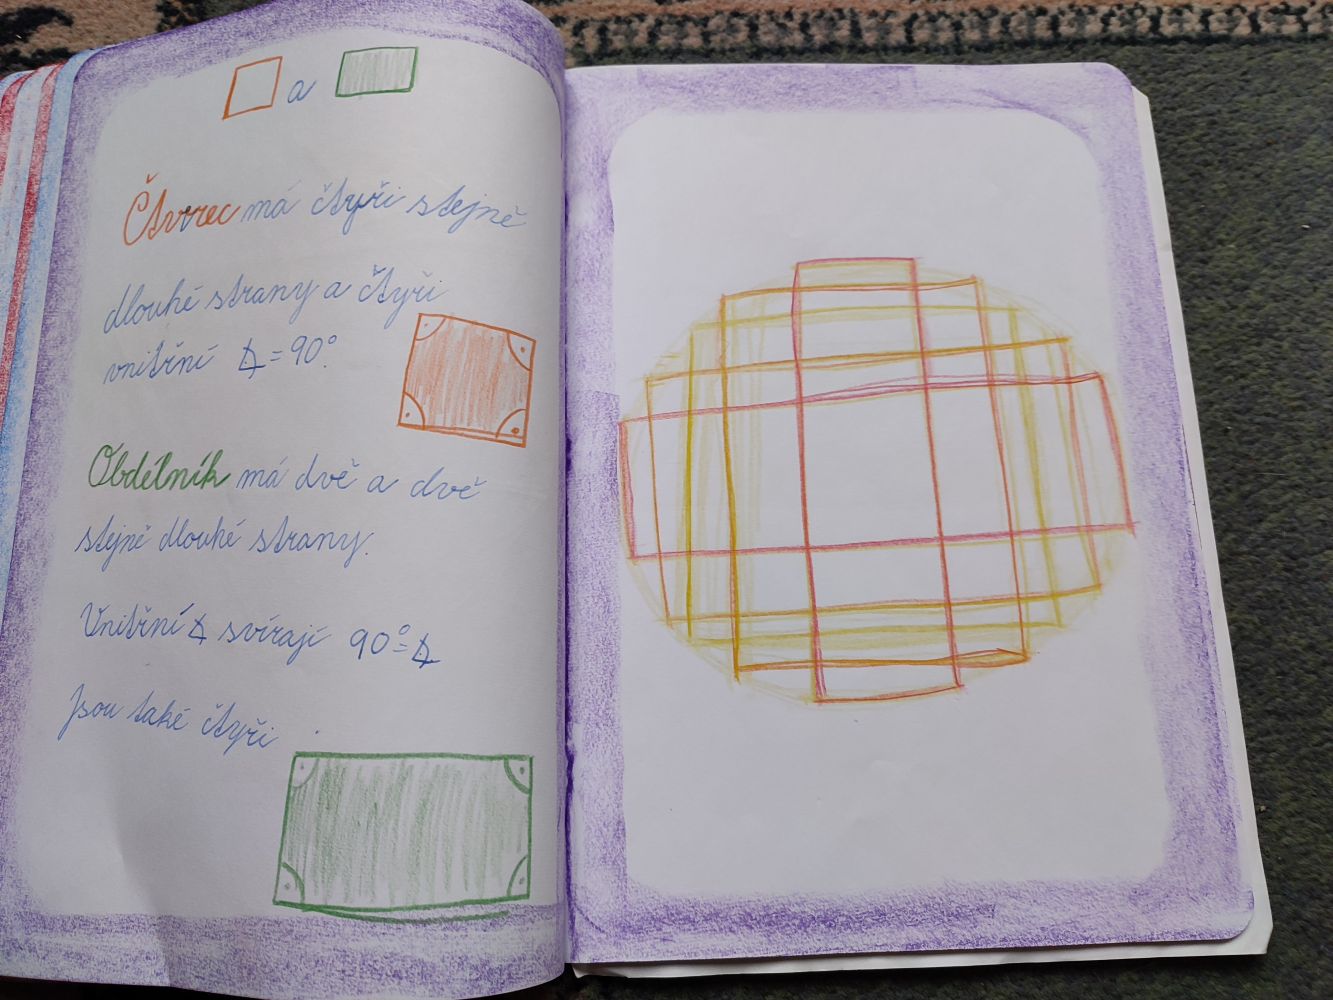 a
Čtverec má čtyři stejně
dlouhé strany a čtyři
vnitřní ∡ = 90°.
Obdélník má dvě a dvě
stejně dlouhé strany.
Vnitřní ∡ svírají 90° = ∡
Jsou také čtyři